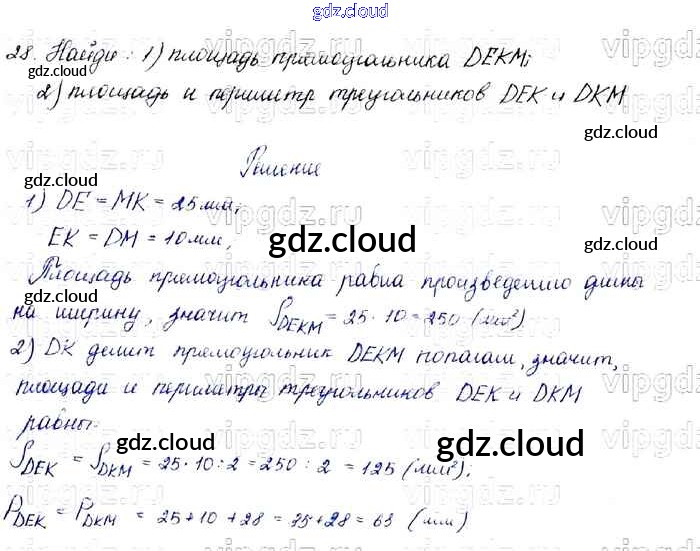 gdz.cloud
28. Найди: 1) площадь прямоугольника DEKM;
gdz.cloud
2) площадь и периметр треугольников DEK и DKM
gdz.cloud
Решение
gdz.cloud
1) DE = MK = 25 мм,
EK = DM = 10 мм,
gdz.cloud
Площадь прямоугольника равна произведению длины
gdz.cloud
на ширину, значит S DEKM = 25 · 10 = 250 (мм²)
2) DK делит прямоугольник DEKM пополам, значит,
площади и периметры треугольников DEK и DKM
равны.
gdz.cloud gdz.cloud
S DEK = S DKM = 25 · 10 : 2 = 250 : 2 = 125 (мм²);
P DEK = P DKM = 25 + 10 + 28 = 35 + 28 = 63 (мм)
gdz.cloud